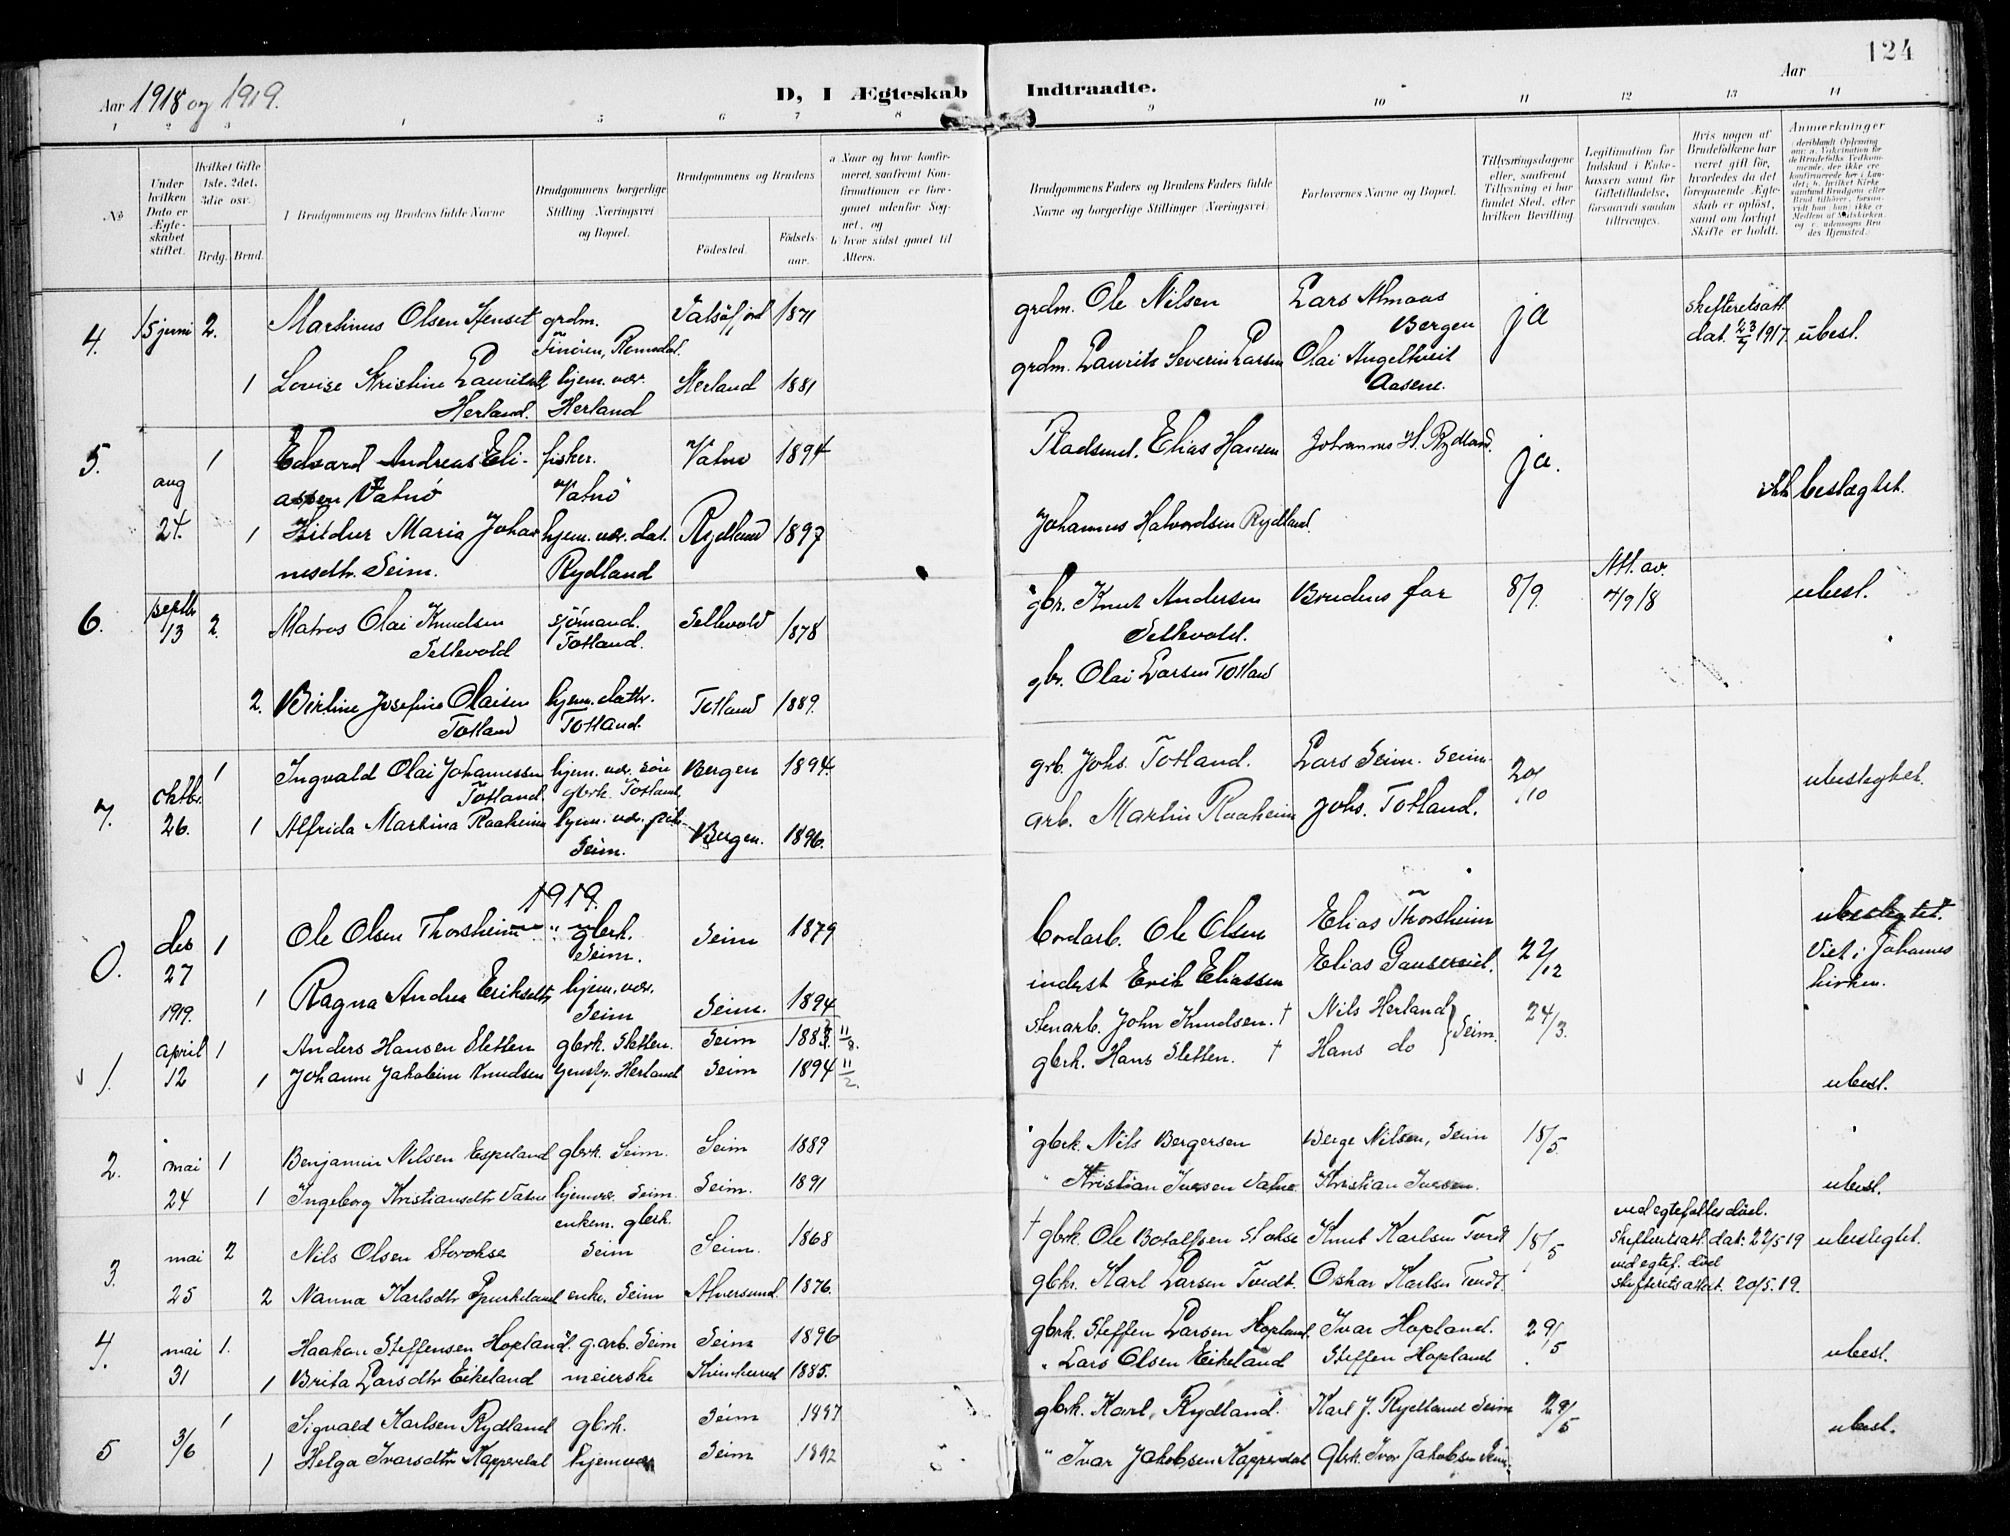 124
Aar 1918 og 1919.
D, I Ægteskab Indtraadte.
Aar
1 2 3 4 5 6 7 8 9 10 11 12 13 14
No
Under hvilken Dato er Ægteskabet stiftet.
Hvilket Gifte 1ste, 2det, 3die osv.)
Brdg. Brud.
Brudgommens og Brudens fulde Navne
Brudgommens borgerlige Stilling Næringsvei og Bopæl.
Brudgommens og Brudens
Födested.
Födselsaar.
a Naar og hvor konfirmeret, saafremt Konfirmationen er foregaaet udenfor Sognet, og
b hvor sidst gaaet til Alters.
Brudgommens Faders og Brudens Faders fulde Navne og borgerlige Stillinger (Næringsvei)
Forlovernes Navne og Bopæl.
Tillysningsdagene eller, saafremt Tillysning ei har fundet Sted, efter hvilken Bevilling
Legitimation for Indskud i Enkekassen samt for Giftetilladelse, forsaavidt saadan tiltrænges.
Hvis nogen af Brudefolkene har været gift för, hvorledes da det foregaaende Ægteskab er oplöst, samt om lovligt Skifte er holdt.
Anmærkninger
4. 15 juni 2. Martinus Olsen Stenset grdm. Valsöfjord 1871 grdm. Ole Nilsen Lars Almaas ja Skifteretsatt.
Tinöien, Romsdal. Bergen dat. 23/7 1917. ubesl.
1 Lovise Kristine Lauritsdtr hjem. vær. Herland 1881 grdm. Laurits Severin Larsen Olai Angeltveit
Herland. Herland Aasene.
5. 1 Edvard Andreas Eli- fisker. Vatnö 1894 Pladsmd. Elias Hansen Johannes H. Rydland. ja.
aug assen Vatnö Vatnö ikke beslægtet.
24. 1 Hildur Maria Johan hjem. vær. dat. Rydland 1897 Johannes Halvordsen Rydland
nesdtr. Seim. Rydland
6. septbr 13 2. Matros Olai Knudsen sjömand. Sellevold 1878 gbr. Knut Andersen Brudens far 8/9. Att. av. 4/9 18 ubesl.
Sellevold Totland. Sellevold.
gbr. Olai Larsen Totland
2. Birtine Josefine Olaisen hjem. dattr. Totland 1889.
Totland Totland.
7. oktbr. 1 Ingvald Olai Johannessen hjem. vær. sön Bergen 1894. grb. Johs. Totland. Lars Seim. Seim. 20/10 ubeslegtet.
Totland. gbrk. Totland
26. 1 Alfrida Martina Raaheim hjem. vær. Bergen. 1896. arb. Martin Raaheim Johs. Totland.
Seim.
1919.
0. des 27 1 Ole Olsen Thorsheim gbrk. Seim 1879 Ole Olsen Elias Thorsheim 22/12 ubeslegtet.
Seim. Viet i Johannes
1 Ragna Andrea Eriksdtr hjem. vær. Seim. 1894 inderst Erik Eliassen kirken.
Seim
1919.
1. april 1 Anders Hansen Sletten gbrk. Sletten. Seim 1883 11/8. stenarb. John Knudsen. † Nils Herland 24/3.
12 1 Johanne Jakobine Knudsen Herland Seim 1894 11/2. gbrk. Hans Sletten. † Hans do Seim. ubesl.
2. mai 1 Benjamin Nilsen Espeland gbrk. Seim. Seim 1889 gbrk. Nils Bergersen Berge Nilsen, Seim 18/5.
24 1 Ingeborg Kristiansdtr Vatne hjemvær. Seim. Seim. 1891 " Kristian Iversen Vatne. Kristian Iversen. ubesl.
enkem. gbrk. ved egtefelles död.
3. mai 2 Nils Olsen Storokse Seim Seim. 1868 † gbrk. Ole Botolfsen Stokse Knut Karlsen Tvedt 18/5 Skifteretsatt. dat. 22/5 19 ubeslegtet.
ved egtef. död
25 2 Nanna Karlsdtr Spurkeland enke. Seim Alversund 1876. gbkr. Karl Larsen Tvedt. Oskar Karlsen Tvedt. skifteretsattest. 20/5. 19.
4. mai 1. Haakon Steffensen Hopland. g.arb. Seim Seim 1896 gbrk. Steffen Larsen Hopland. Ivar Hopland. 29/5
31 1 Brita Larsdtr Eikeland meierske 1885. " Lars Olsen Eikeland Steffen Hopland ubesl.
5 3/6 1 Sigvald Karlsen Rydland gbrk. Seim 1897 gbrk. Karl Rydland. Karl J. Rydland Seim 29/5 ubesl.
1 Helga Ivarsdtr Kapperdal hjemvær Seim 1892 " Ivar Jakobsen Kapperdal Gbrk. Ivar Jakobsen Seim.